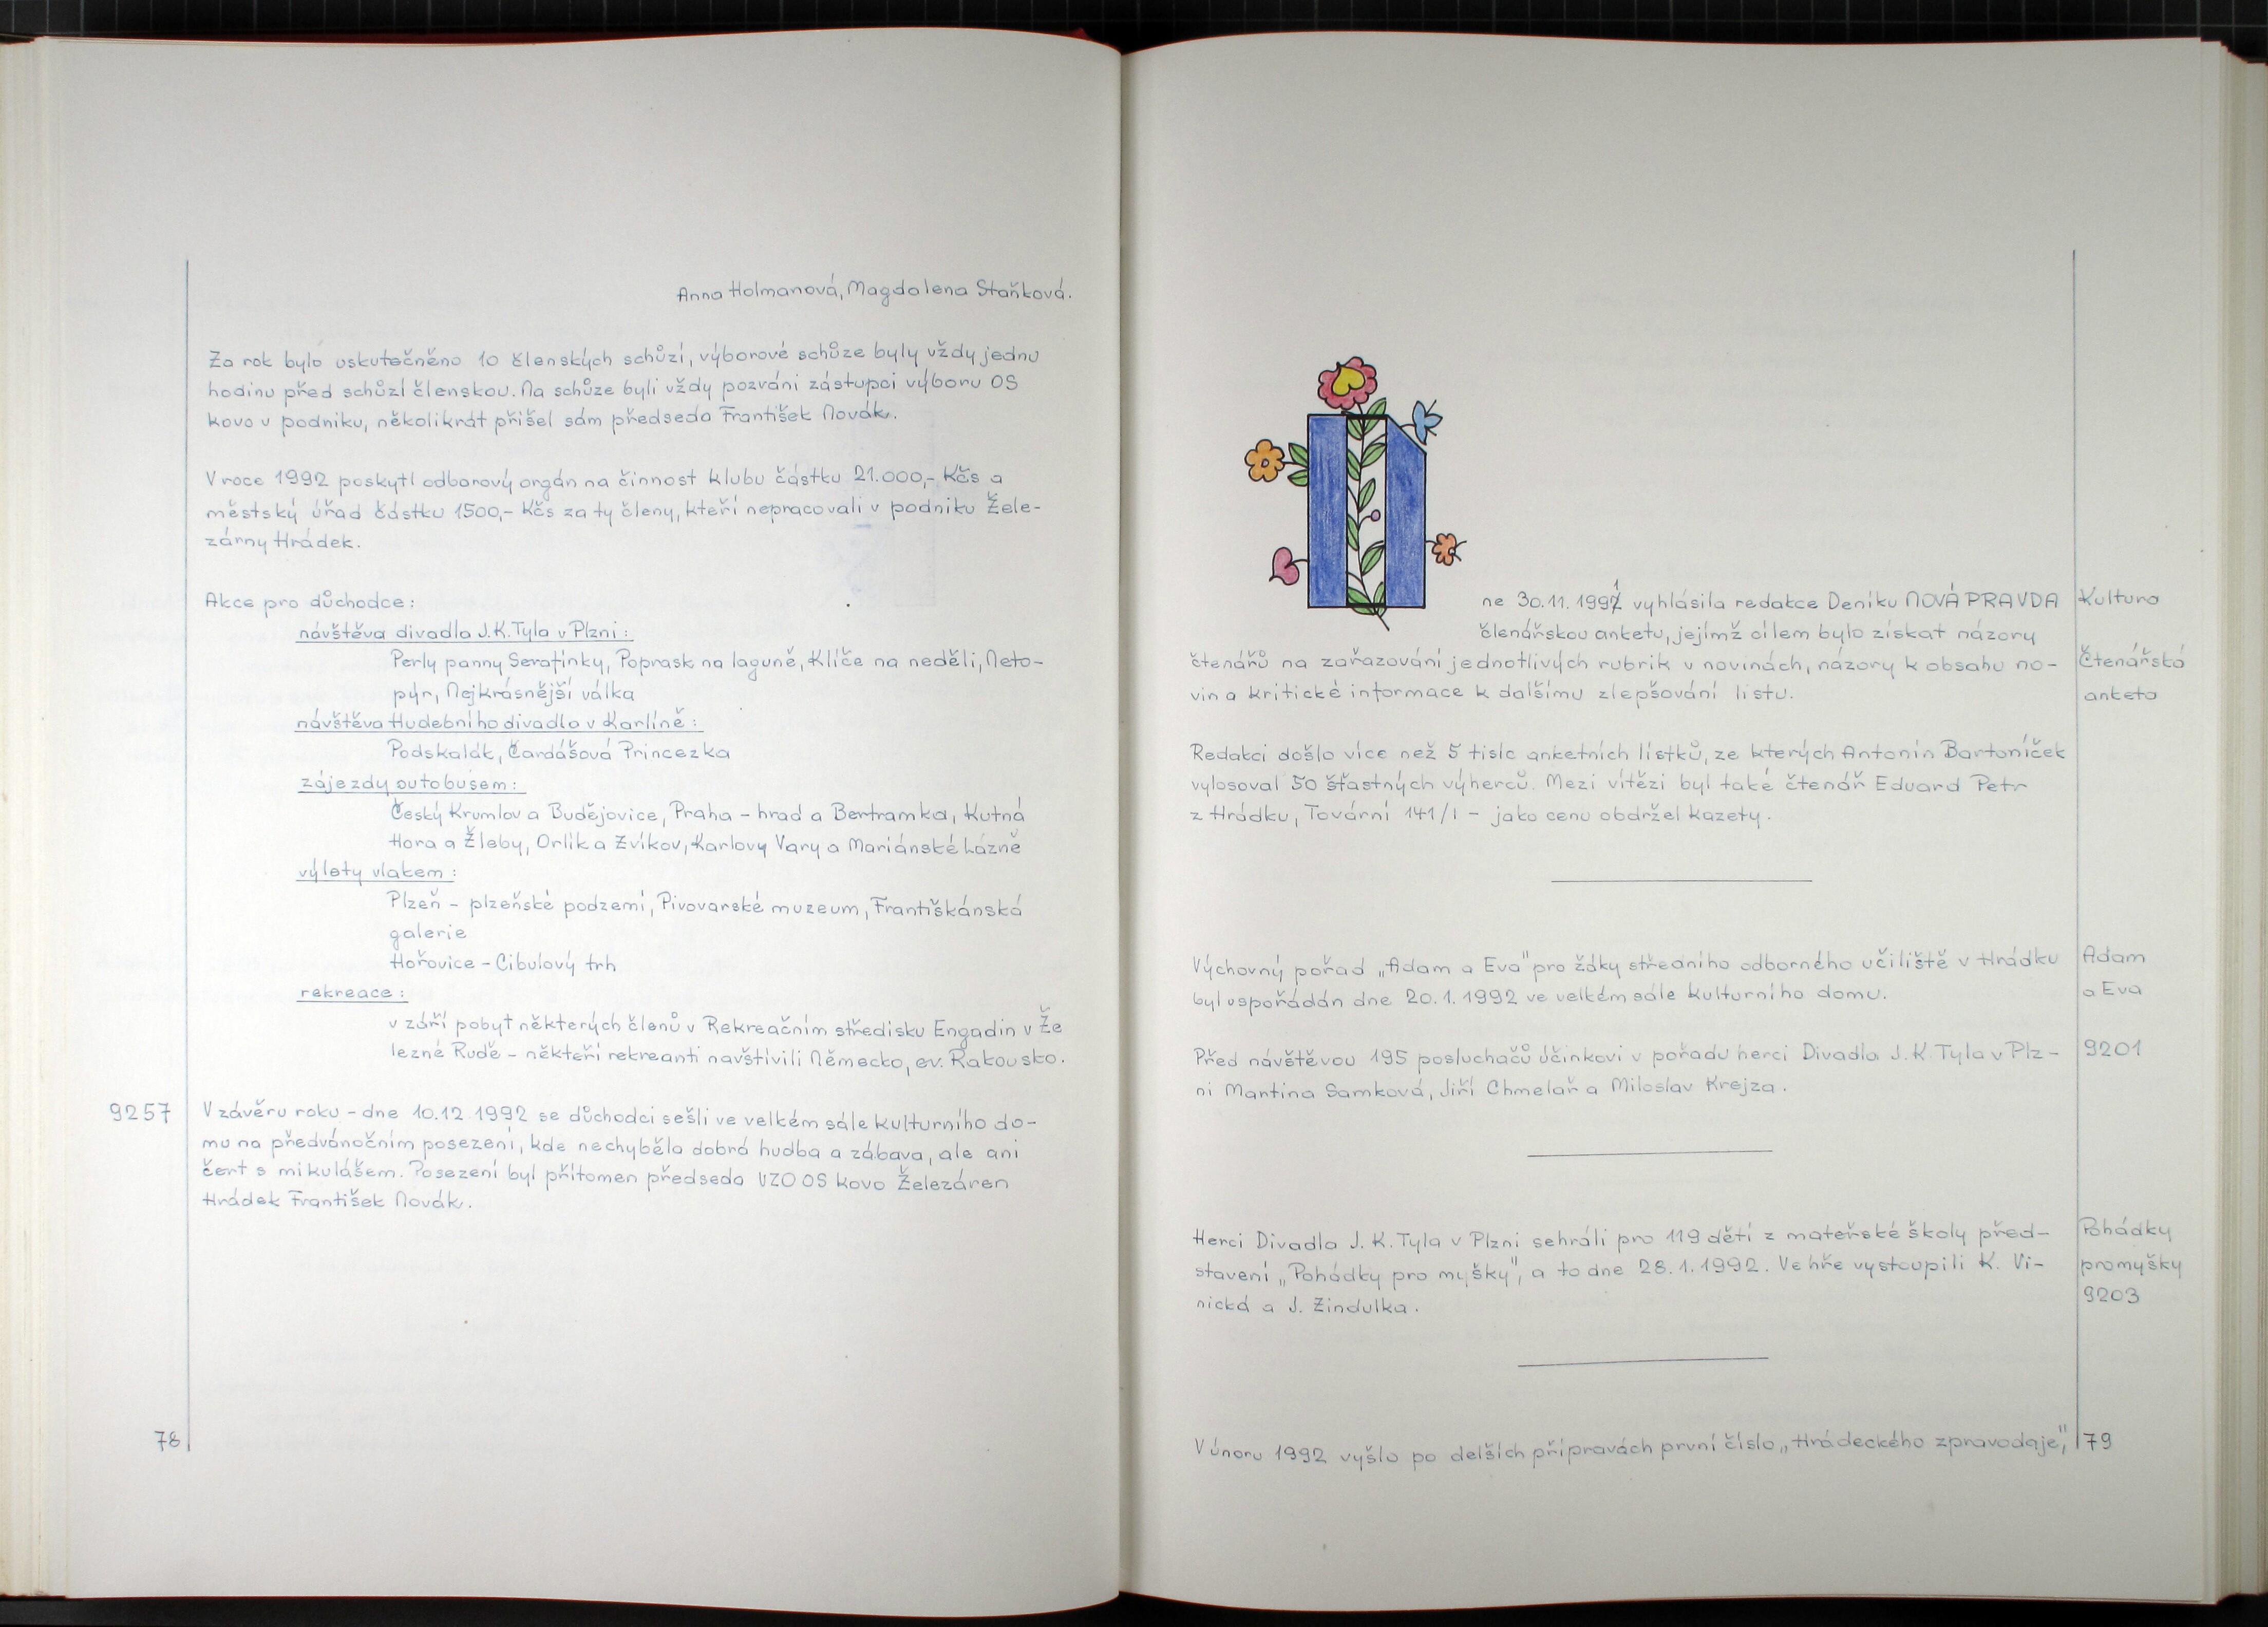 Anna Holmanová, Magdalena Staňková.
Za rok bylo uskutečněno 10 členských schůzí, výborové schůze byly vždy jednu
hodinu před schůzí členskou. Na schůze byli vždy pozváni zástupci výboru OS
kovo v podniku, několikrát přišel sám předseda František Novák.
V roce 1992 poskytl odborový orgán na činnost klubu částku 21.000,- Kčs a
městský úřad částku 1500,- Kčs za ty členy, kteří nepracovali v podniku Žele-
zárny Hrádek.
Akce pro důchodce:
návštěva divadla J.K.Tyla v Plzni:
Perly panny Serafinky, Poprask na laguně, Klíče na neděli, Neto-
pýr, Nejkrásnější válka
návštěva Hudebního divadla v Karlíně:
Podskalák, Čardášová Princezka
zájezdy autobusem:
Český Krumlov a Budějovice, Praha - hrad a Bertramka, Kutná
Hora a Žleby, Orlík a Zvíkov, Karlovy Vary a Mariánské Lázně
výlety vlakem:
Plzeň - plzeňské podzemí, Pivovarské muzeum, Františkánská
galerie
Hořovice - Cibulový trh
rekreace:
v září pobyt některých členů v Rekreačním středisku Engadin v Že
lezné Rudě - někteří rekreanti navštívili Německo, ev. Rakousko.
9257 V závěru roku - dne 10.12 1992 se důchodci sešli ve velkém sále kulturního do-
mu na předvánočním posezení, kde nechyběla dobrá hudba a zábava, ale ani
čert s mikulášem. Posezení byl přítomen předseda VZO OS kovo Železáren
Hrádek František Novák.
78
D
ne 30.11.1991 vyhlásila redakce Deníku NOVÁ PRAVDA Kultura
členářskou anketu, jejímž cílem bylo získat názory
čtenářů na zařazování jednotlivých rubrik v novinách, názory k obsahu no- Čtenářská
vin a kritické informace k dalšímu zlepšování listu. anketa
Redakci došlo více než 5 tisíc anketních lístků, ze kterých Antonín Bartoníček
vylosoval 50 šťastných výherců. Mezi vítězi byl také čtenář Eduard Petr
z Hrádku, Tovární 141/I - jako cenu obdržel kazety.
Výchovný pořad „Adam a Eva" pro žáky středního odborného učiliště v Hrádku Adam
byl uspořádán dne 20.1.1992 ve velkém sále kulturního domu. a Eva
Před návštěvou 195 posluchačů účinkovi v pořadu herci Divadla J.K.Tyla v Plz- 9201
ni Martina Samková, Jiří Chmelař a Miloslav Krejza.
Herci Divadla J.K.Tyla v Plzni sehráli pro 119 dětí z mateřské školy před- Pohádky
stavení „Pohádky pro myšky", a to dne 28.1.1992. Ve hře vystoupili K. Vi- pro myšky
nická a J. Zindulka. 9203
V únoru 1992 vyšlo po delších přípravách první číslo „Hrádeckého zpravodaje", 79